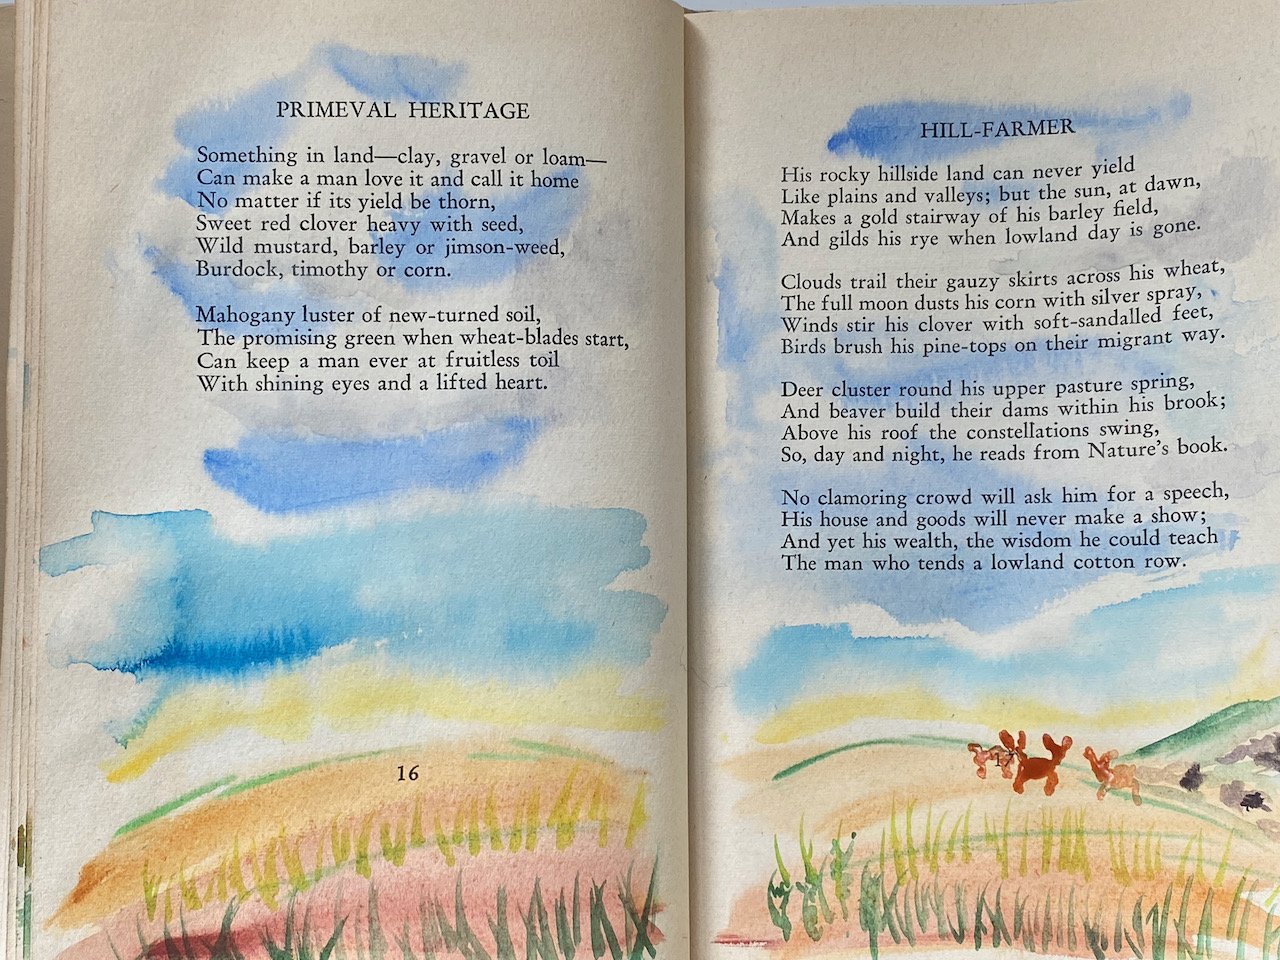 PRIMEVAL HERITAGE
Something in land—clay, gravel or loam—
Can make a man love it and call it home
No matter if its yield be thorn,
Sweet red clover heavy with seed,
Wild mustard, barley or jimson-weed,
Burdock, timothy or corn.
Mahogany luster of new-turned soil,
The promising green when wheat-blades start,
Can keep a man ever at fruitless toil
With shining eyes and a lifted heart.
16
HILL-FARMER
His rocky hillside land can never yield
Like plains and valleys; but the sun, at dawn,
Makes a gold stairway of his barley field,
And gilds his rye when lowland day is gone.
Clouds trail their gauzy skirts across his wheat,
The full moon dusts his corn with silver spray,
Winds stir his clover with soft-sandalled feet,
Birds brush his pine-tops on their migrant way.
Deer cluster round his upper pasture spring,
And beaver build their dams within his brook;
Above his roof the constellations swing,
So, day and night, he reads from Nature's book.
No clamoring crowd will ask him for a speech,
His house and goods will never make a show;
And yet his wealth, the wisdom he could teach
The man who tends a lowland cotton row.
17